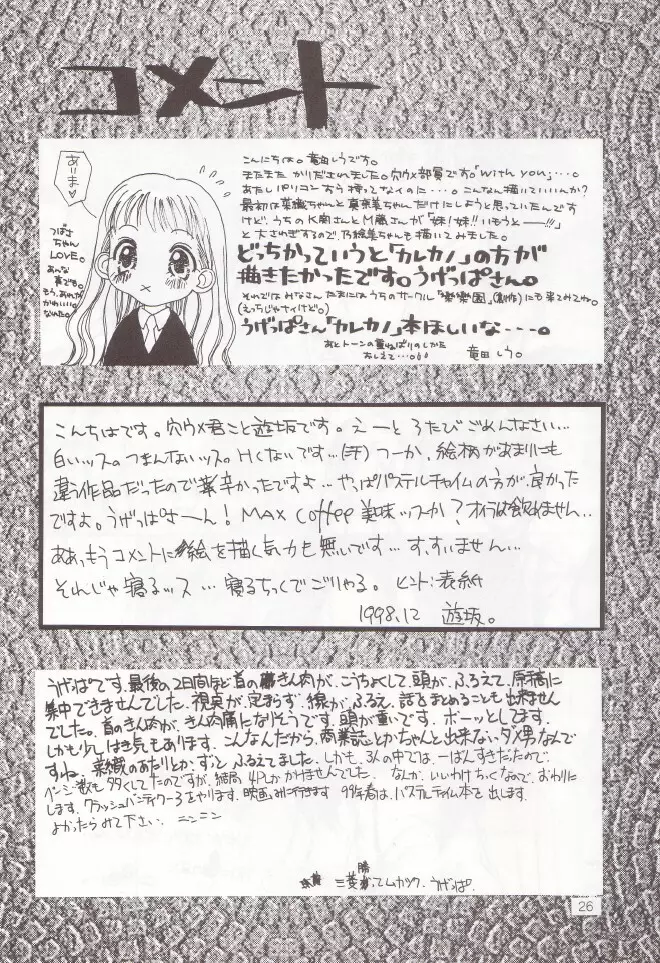 コメント
ありま♡
つばさ
ちゃん
LOVE。
あんな
妻でも。
もう、あれが
かわいい
なった。
こんにちは。竜田しうです。
またまた かりだされました。穴ウメ部員です。「with you」…。
あたしパソコンすら持ってないのに…。こんなん描いていいんか?
最初は菜織ちゃんと真奈美ちゃんだけにしようと思っていたんです
けど、うちのK南さんとM蔵さんが「妹!妹!!いもうとー!!!」
と大さわぎするので、乃絵美ちゃんも描いてみました。
どっちかっていうと「カレカノ」の方が
描きたかったです。うげっぱさん。
それではみなさん たまにはうちのサークル「楽園」(創作)にも来てみてね。
(えっちじゃナイけど。)
うげっぱさん「カレカノ」本ほしいな---。
あとトーンの重ねばりのしかた
おしえて…。
竜田しう。
こんちはです。穴ウメ君こと遊坂です。えーと ろたびごめんなさい…
白いッス。つまんないッス。Hくないです…(汗) つーか、絵柄があまりにも
違う作品だったので辛かったですよ…やっぱパステルチャイムの方が良かった
ですよ。うげっぱさーん! MAX COFFEE 美味ッスーか? オイラは飲めません…
ああっもうコメントに絵を描く気力も無いです…す、すいません…
そんじゃ寝るッス…寝るちっくでごりゃる。 ヒント:表紙
1998.12 遊坂。
うげっぱです。最後の2日間ほど首のきん肉が、こうちょくして、頭が、ふるえて、原稿に
集中できませんでした。視点が、定まらず、線が、ふるえ、話をまとめることも出来ません
でした。首のきん肉が、きん肉痛になりそうです。頭が重いです。ボーッとしてます。
しかも少しはき気もあります。こんなんだから、商業誌とかちゃんと出来ない、ダメ男なんで
すね。菜織のあたりとか、ずっと、ふるえてました。しかも、3人の中では、一ばんすきだったので
ページ数も多くしてたのですが、結局、4Pしかかけませんでした。なんか、いいわけちっくなので、おわりに
します。クラッシュバンディクー3をやります。映画みに行きます 99年春は、パステルチャイム本を出します。
よかったらみて下さい。ニンニン
三菱勝ってムカツク。うげっぱ。
26